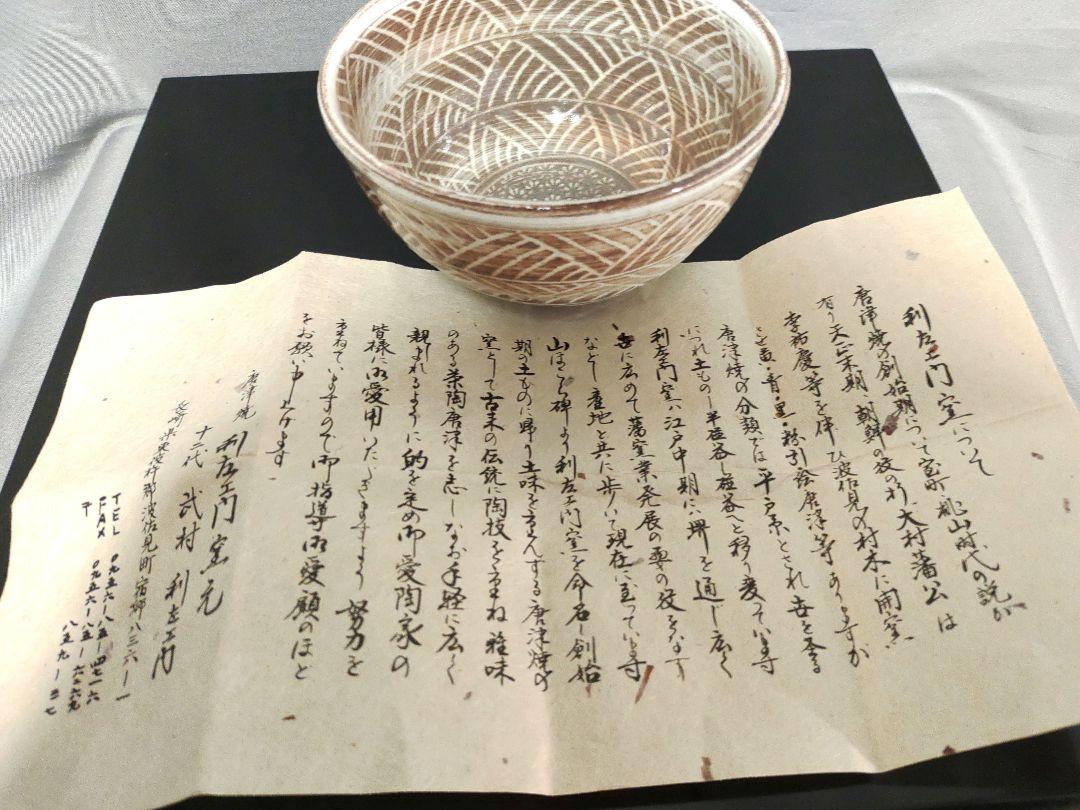 利左エ門窯について
唐津焼の創始期について室町、桃山時代の説が
有り天正末期、朝鮮の役の折、大村藩公は
李祐慶等を伴ひ波佐見の村木に開窯
黄・青・黒・粉引・絵唐津等ありますが
唐津焼の分類では平戸系とされ世を
につれ土もの→半磁器→磁器へと移り変っています
利左エ門窯は江戸中期に堺を通じ広く
世に広めて藩窯業発展の要の役をなす
など産地と共に歩いて現在に至っています
山ほこら碑より利左エ門窯を命名し創始
期の土ものに帰り土味を重んずる唐津焼の
窯として古来の伝統に陶技をかさね雅味
のある茶陶唐津を志しなお手軽に広く
親しまれるように的を定め御愛陶家の
皆様に御愛用いただきますよう努力を
重ねていますので御指導御愛顧のほど
をお願い申し上げます
唐津焼 利左エ門窯元
十二代 武村利左エ門
長崎県東彼杵郡波佐見町宿郷八三六ー一
TEL 〇九五六ー八五ー四七一六
FAX 〇九五六ー八五ー六六六九
〒 八五九ー三七